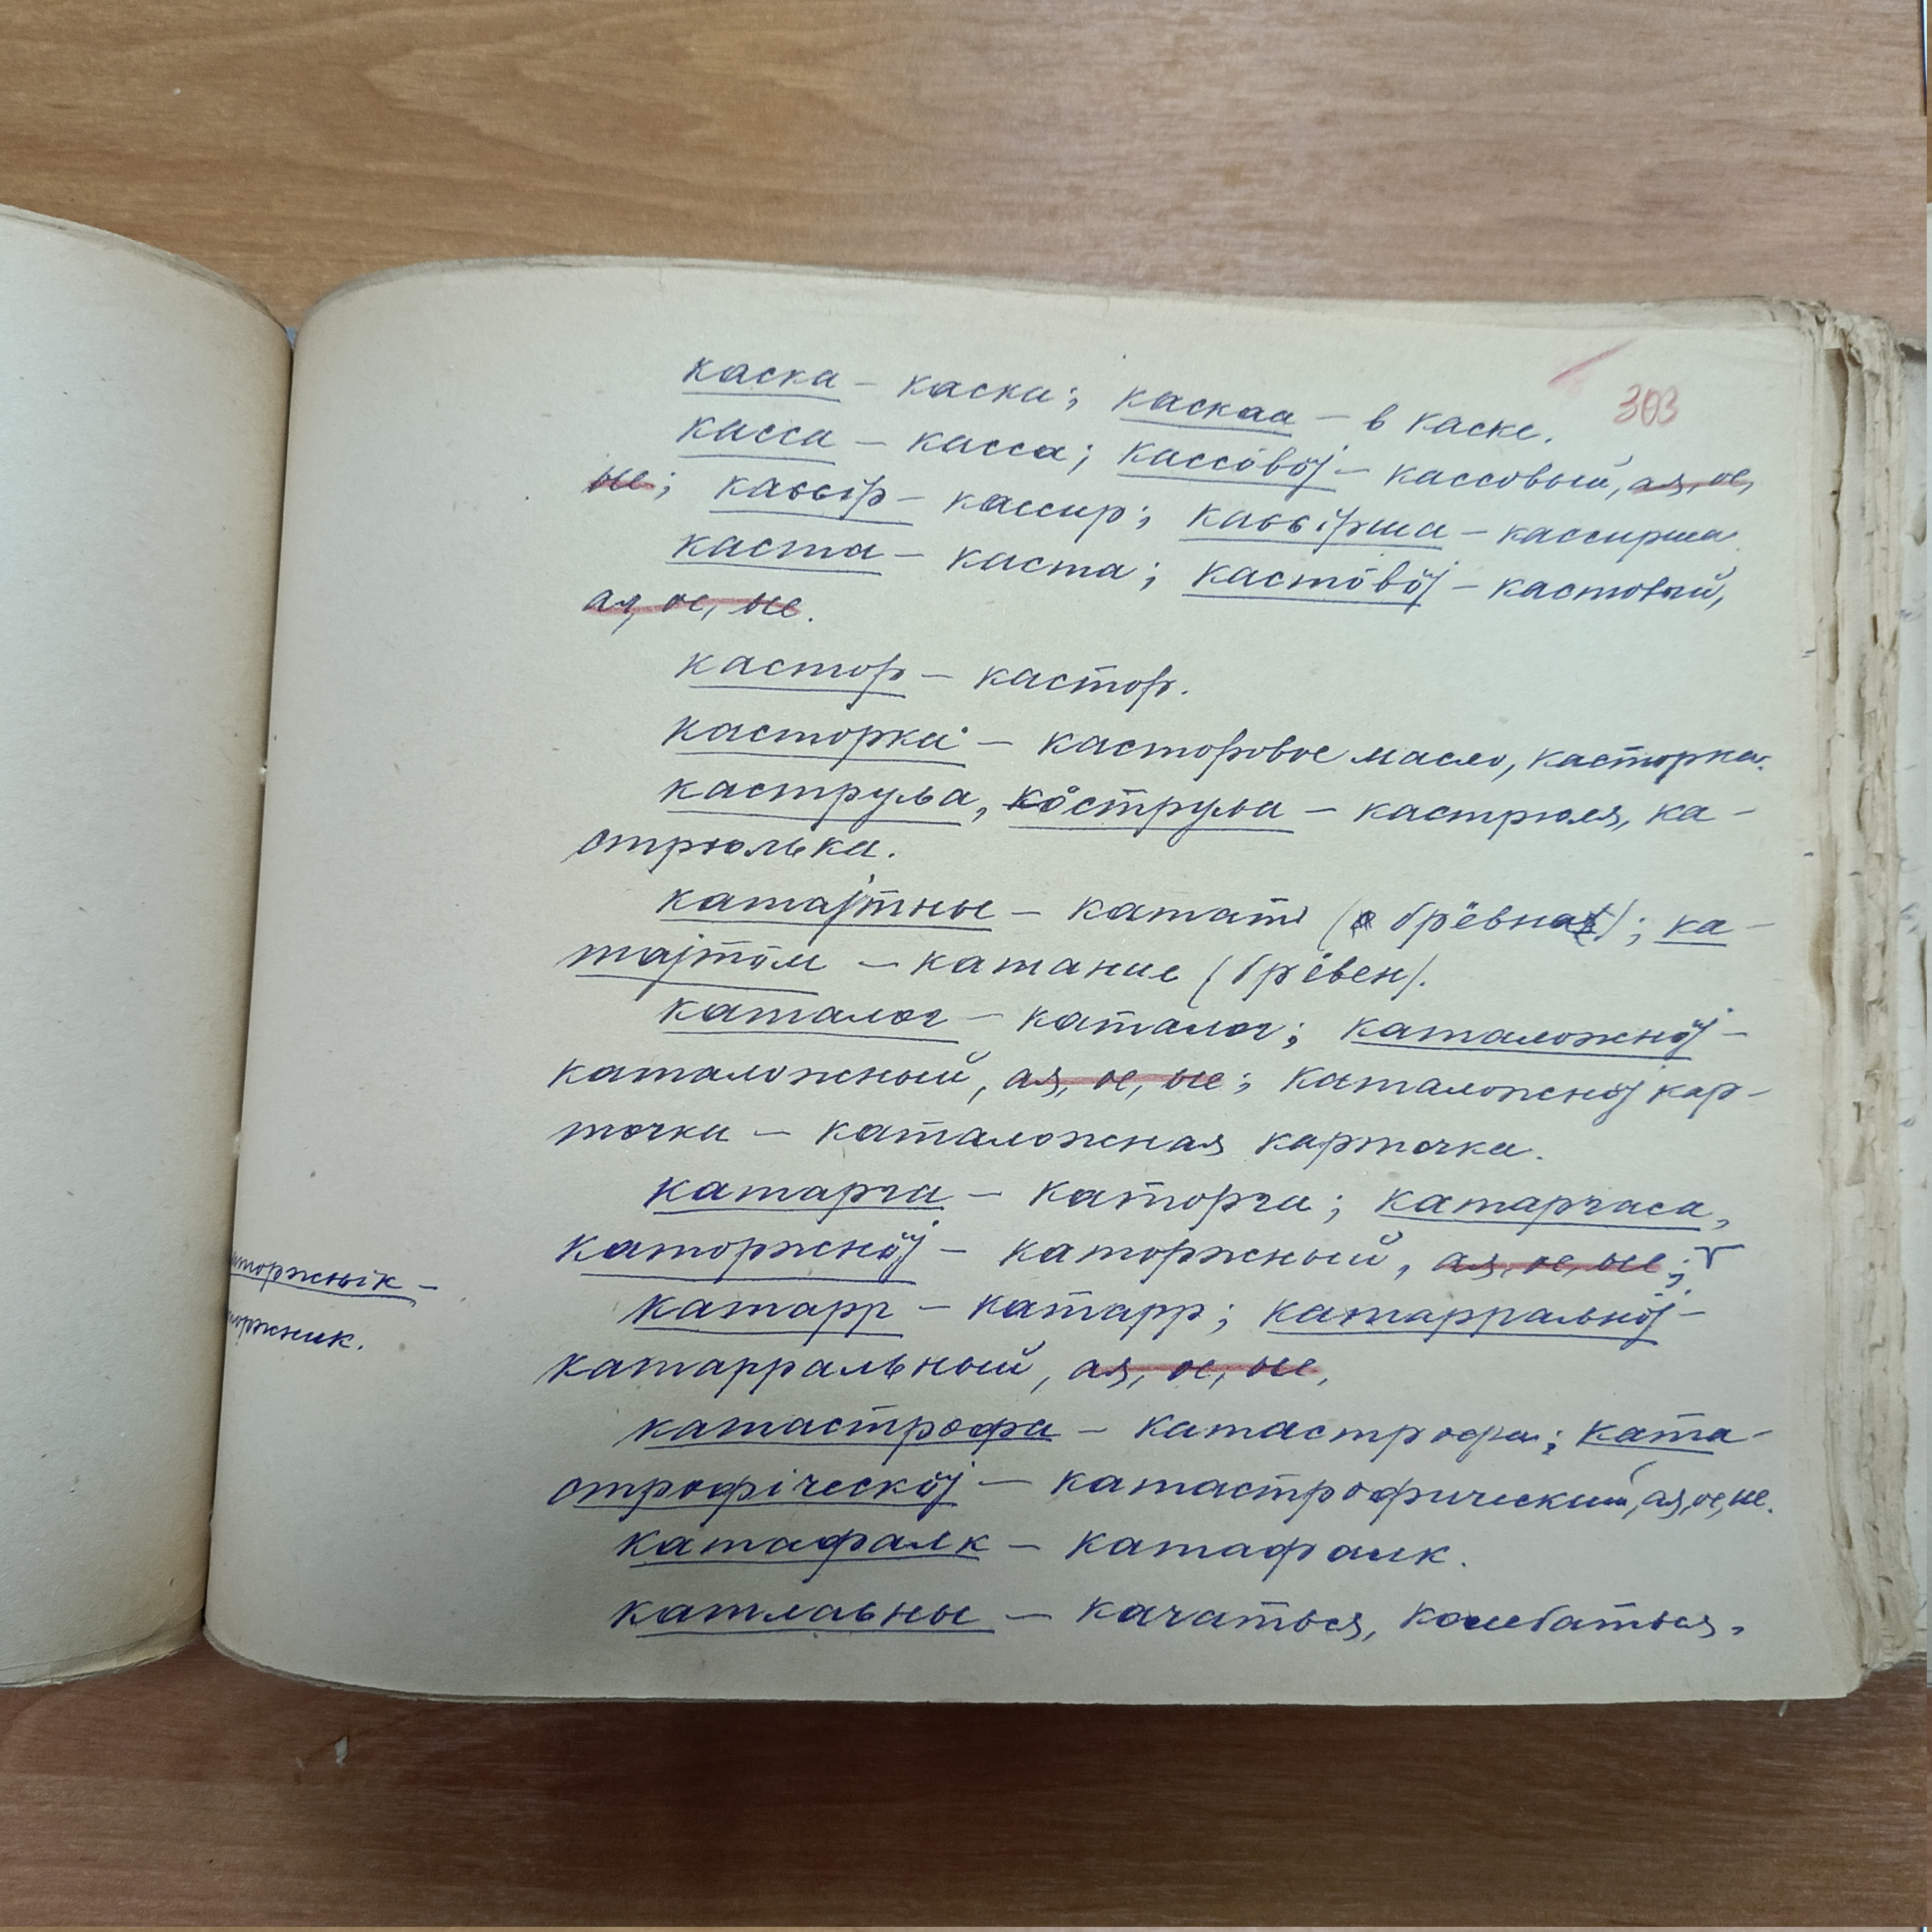 303
каска – каска; каскаа – в каске.
касса – касса; кассӧвӧј – кассовый, ая, ое,
ые; каььір – кассир; каььірша – кассирша.
каста – каста; кастӧвӧј – кастовый,
ая, ое, ые.
кастор – кастор.
касторка – касторовое масло, касторка.
каструља, кӧструља – кастрюля, ка-
стрюлька.
катајтны – катать (брёвна); ка-
тајтӧм – катание (брёвен).
каталог – каталог; каталожнӧј –
каталожный, ая, ое, ые; каталожнӧј кар-
точка – каталожная карточка.
катарга – каторга; катаргаса,
каторжнӧј – каторжный, ая, ое, ые;
торжњік –
торжник.
катарр – катарр; катарральнӧј –
катарральный, ая, ое, ые.
катастрофа – катастрофа; ката-
строфіческӧј – катастрофический, ая, ое, ие.
катафалк – катафалк.
катлаьны – качаться, колебаться,